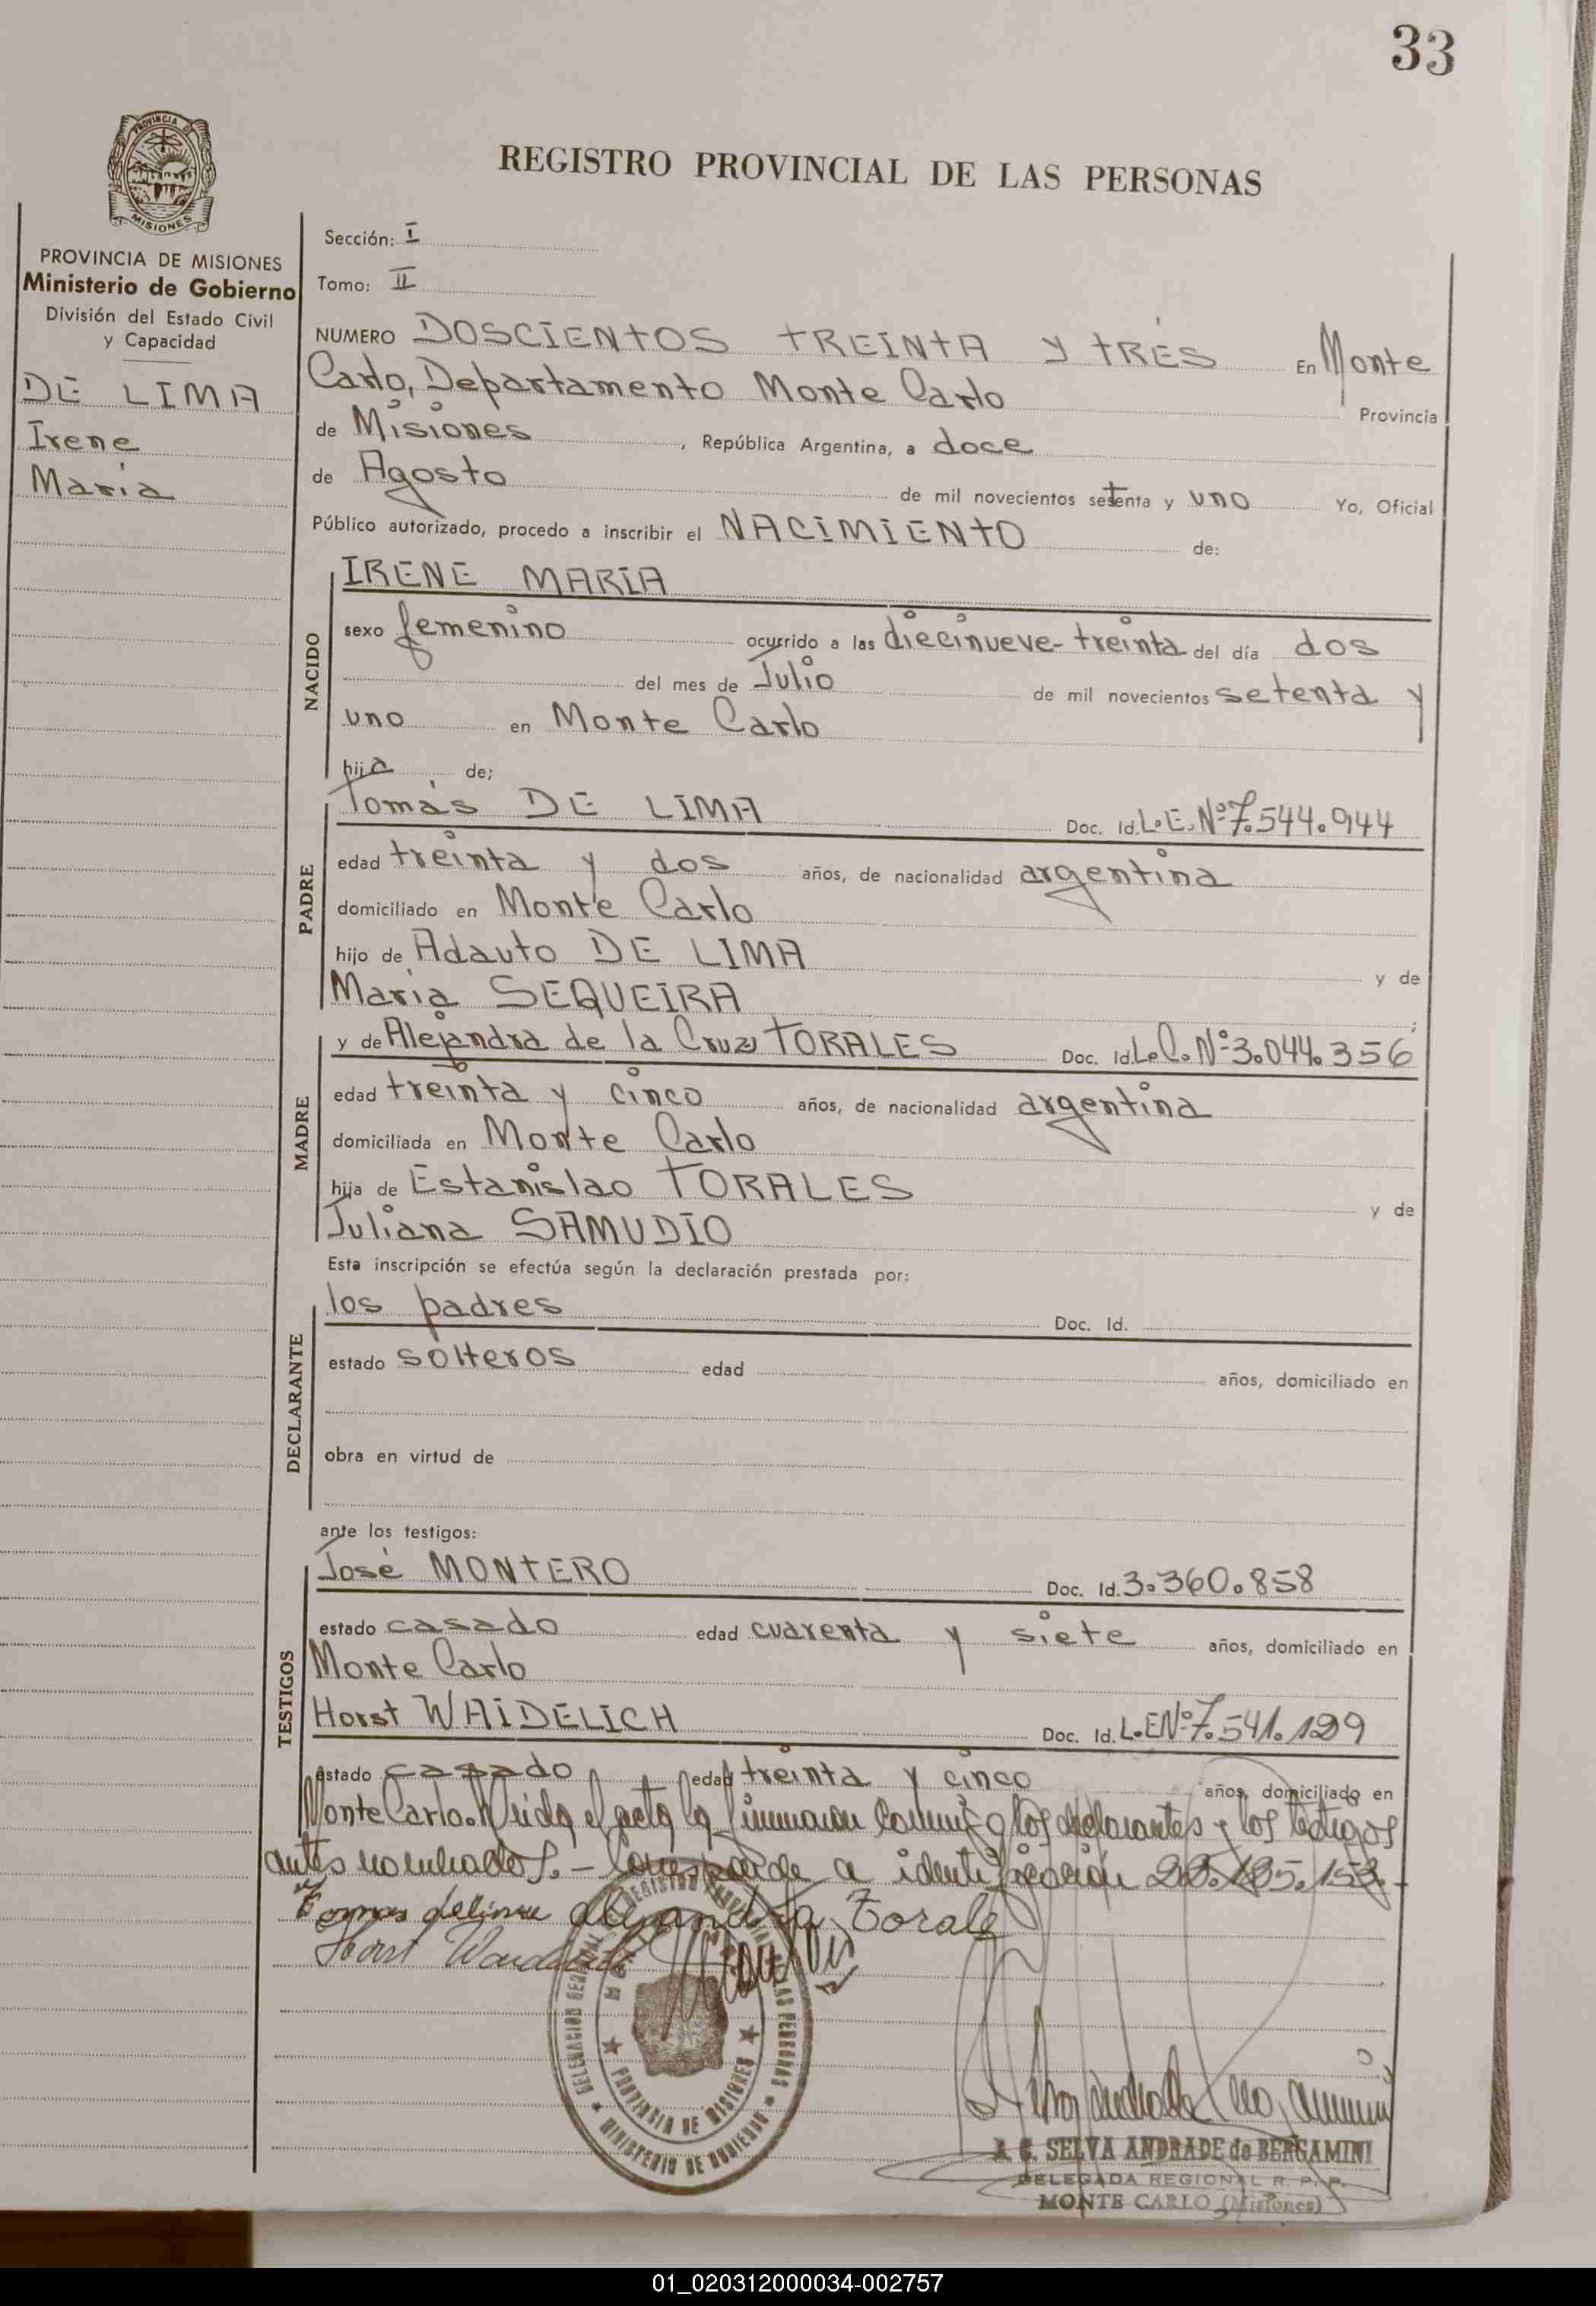 33
REGISTRO PROVINCIAL DE LAS PERSONAS
PROVINCIA DE MISIONES
PROVINCIA DE MISIONES
Ministerio de Gobierno
División del Estado Civil
y Capacidad
DE LIMA
Irene
María
Sección: I
Tomo: II
NUMERO DOSCIENTOS TREINTA y TRÉS En Monte
Carlo, Departamento Monte Carlo Provincia
de Misiones, República Argentina, a doce
de Agosto de mil novecientos setenta y uno Yo, Oficial
Público autorizado, procedo a inscribir el NACIMIENTO de:
NACIDO
IRENE MARIA
sexo femenino ocurrido a las diecinueve-treinta del día dos
del mes de Julio de mil novecientos setenta y
uno en Monte Carlo
hija de;
PADRE
Tomás DE LIMA Doc. Id. L.E. Nº 7.544.944
edad treinta y dos años, de nacionalidad argentina
domiciliado en Monte Carlo
hijo de Adauto DE LIMA y de
María SEQUEIRA
MADRE
y de Alejandra de la Cruz TORALES Doc. Id. L.C. Nº 3.044.356
edad treinta y cinco años, de nacionalidad argentina
domiciliada en Monte Carlo
hija de Estanislao TORALES y de
Juliana SAMUDIO
Esta inscripción se efectúa según la declaración prestada por:
DECLARANTE
los padres Doc. Id.
estado solteros edad años, domiciliado en
obra en virtud de
ante los testigos:
TESTIGOS
José MONTERO Doc. Id. 3.360.858
estado casado edad cuarenta y siete años, domiciliado en
Monte Carlo
Horst WAIDELICH Doc. Id. L.E Nº 7.541.199
estado casado edad treinta y cinco años, domiciliado en
Monte Carlo. Leída el acta la firmaron conmigo los declarantes y los testigos
antes nombrados. - Corresponde a identificación 22.185.152.-
Tomas delima Alejandra Torale
Horst Waidelich
MINISTERIO DE GOBIERNO
PROVINCIA DE MISIONES
A C. SELVA ANDRADE de BERGAMINI
DELEGADA REGIONAL R. P. P.
MONTE CARLO (Misiones)
01_020312000034-002757